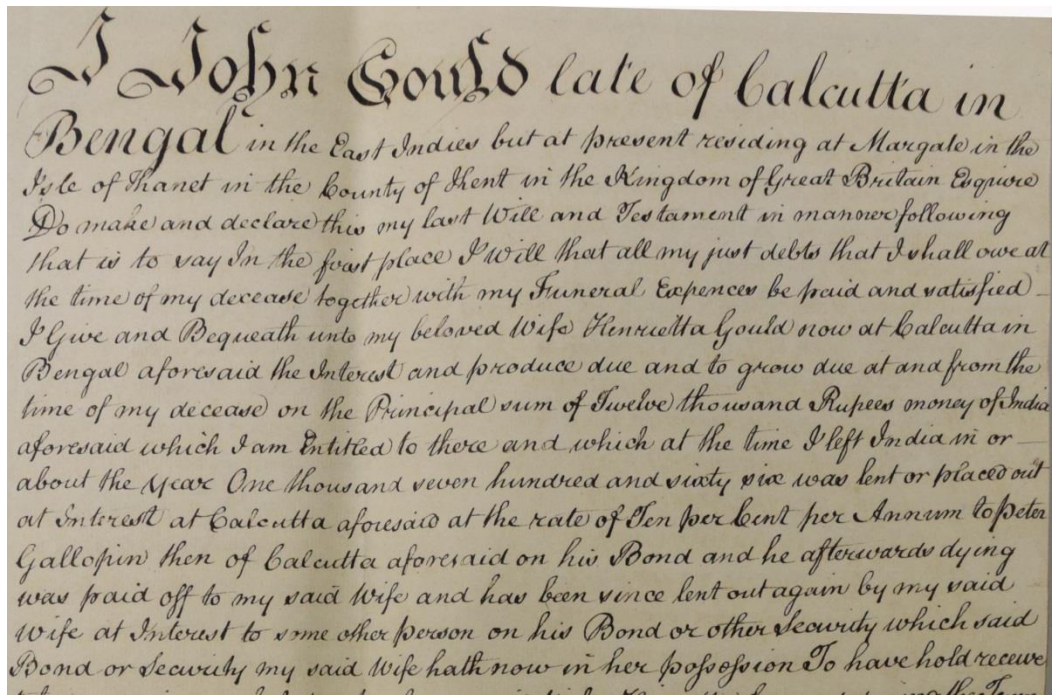 I John Gould late of Calcutta in
Bengal in the East Indies but at present residing at Margate in the
Isle of Thanet in the County of Kent in the Kingdom of Great Britain Esquire
Do make and declare this my last Will and Testament in manner following
that is to say In the first place I Will that all my just debts that I shall owe at
the time of my decease together with my Funeral Expences be paid and satisfied
I Give and Bequeath unto my beloved Wife Henrietta Gould now at Calcutta in
Bengal aforesaid the Interest and produce due and to grow due at and from the
time of my decease on the Principal sum of Twelve thousand Rupees money of India
aforesaid which I am Entitled to there and which at the time I left India in or
about the Year One thousand seven hundred and sixty six was lent or placed out
at Interest at Calcutta aforesaid at the rate of Ten per Cent per Annum to Peter
Gallopin then of Calcutta aforesaid on his Bond and he afterwards dying
was paid off to my said Wife and has been since lent out again by my said
Wife at Interest to some other person on his Bond or other Security which said
Bond or Security my said Wife hath now in her possession To have hold receive